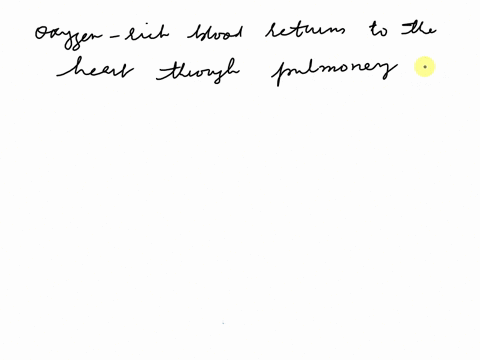 oxygen-rich blood returns to the
heart through pulmoney